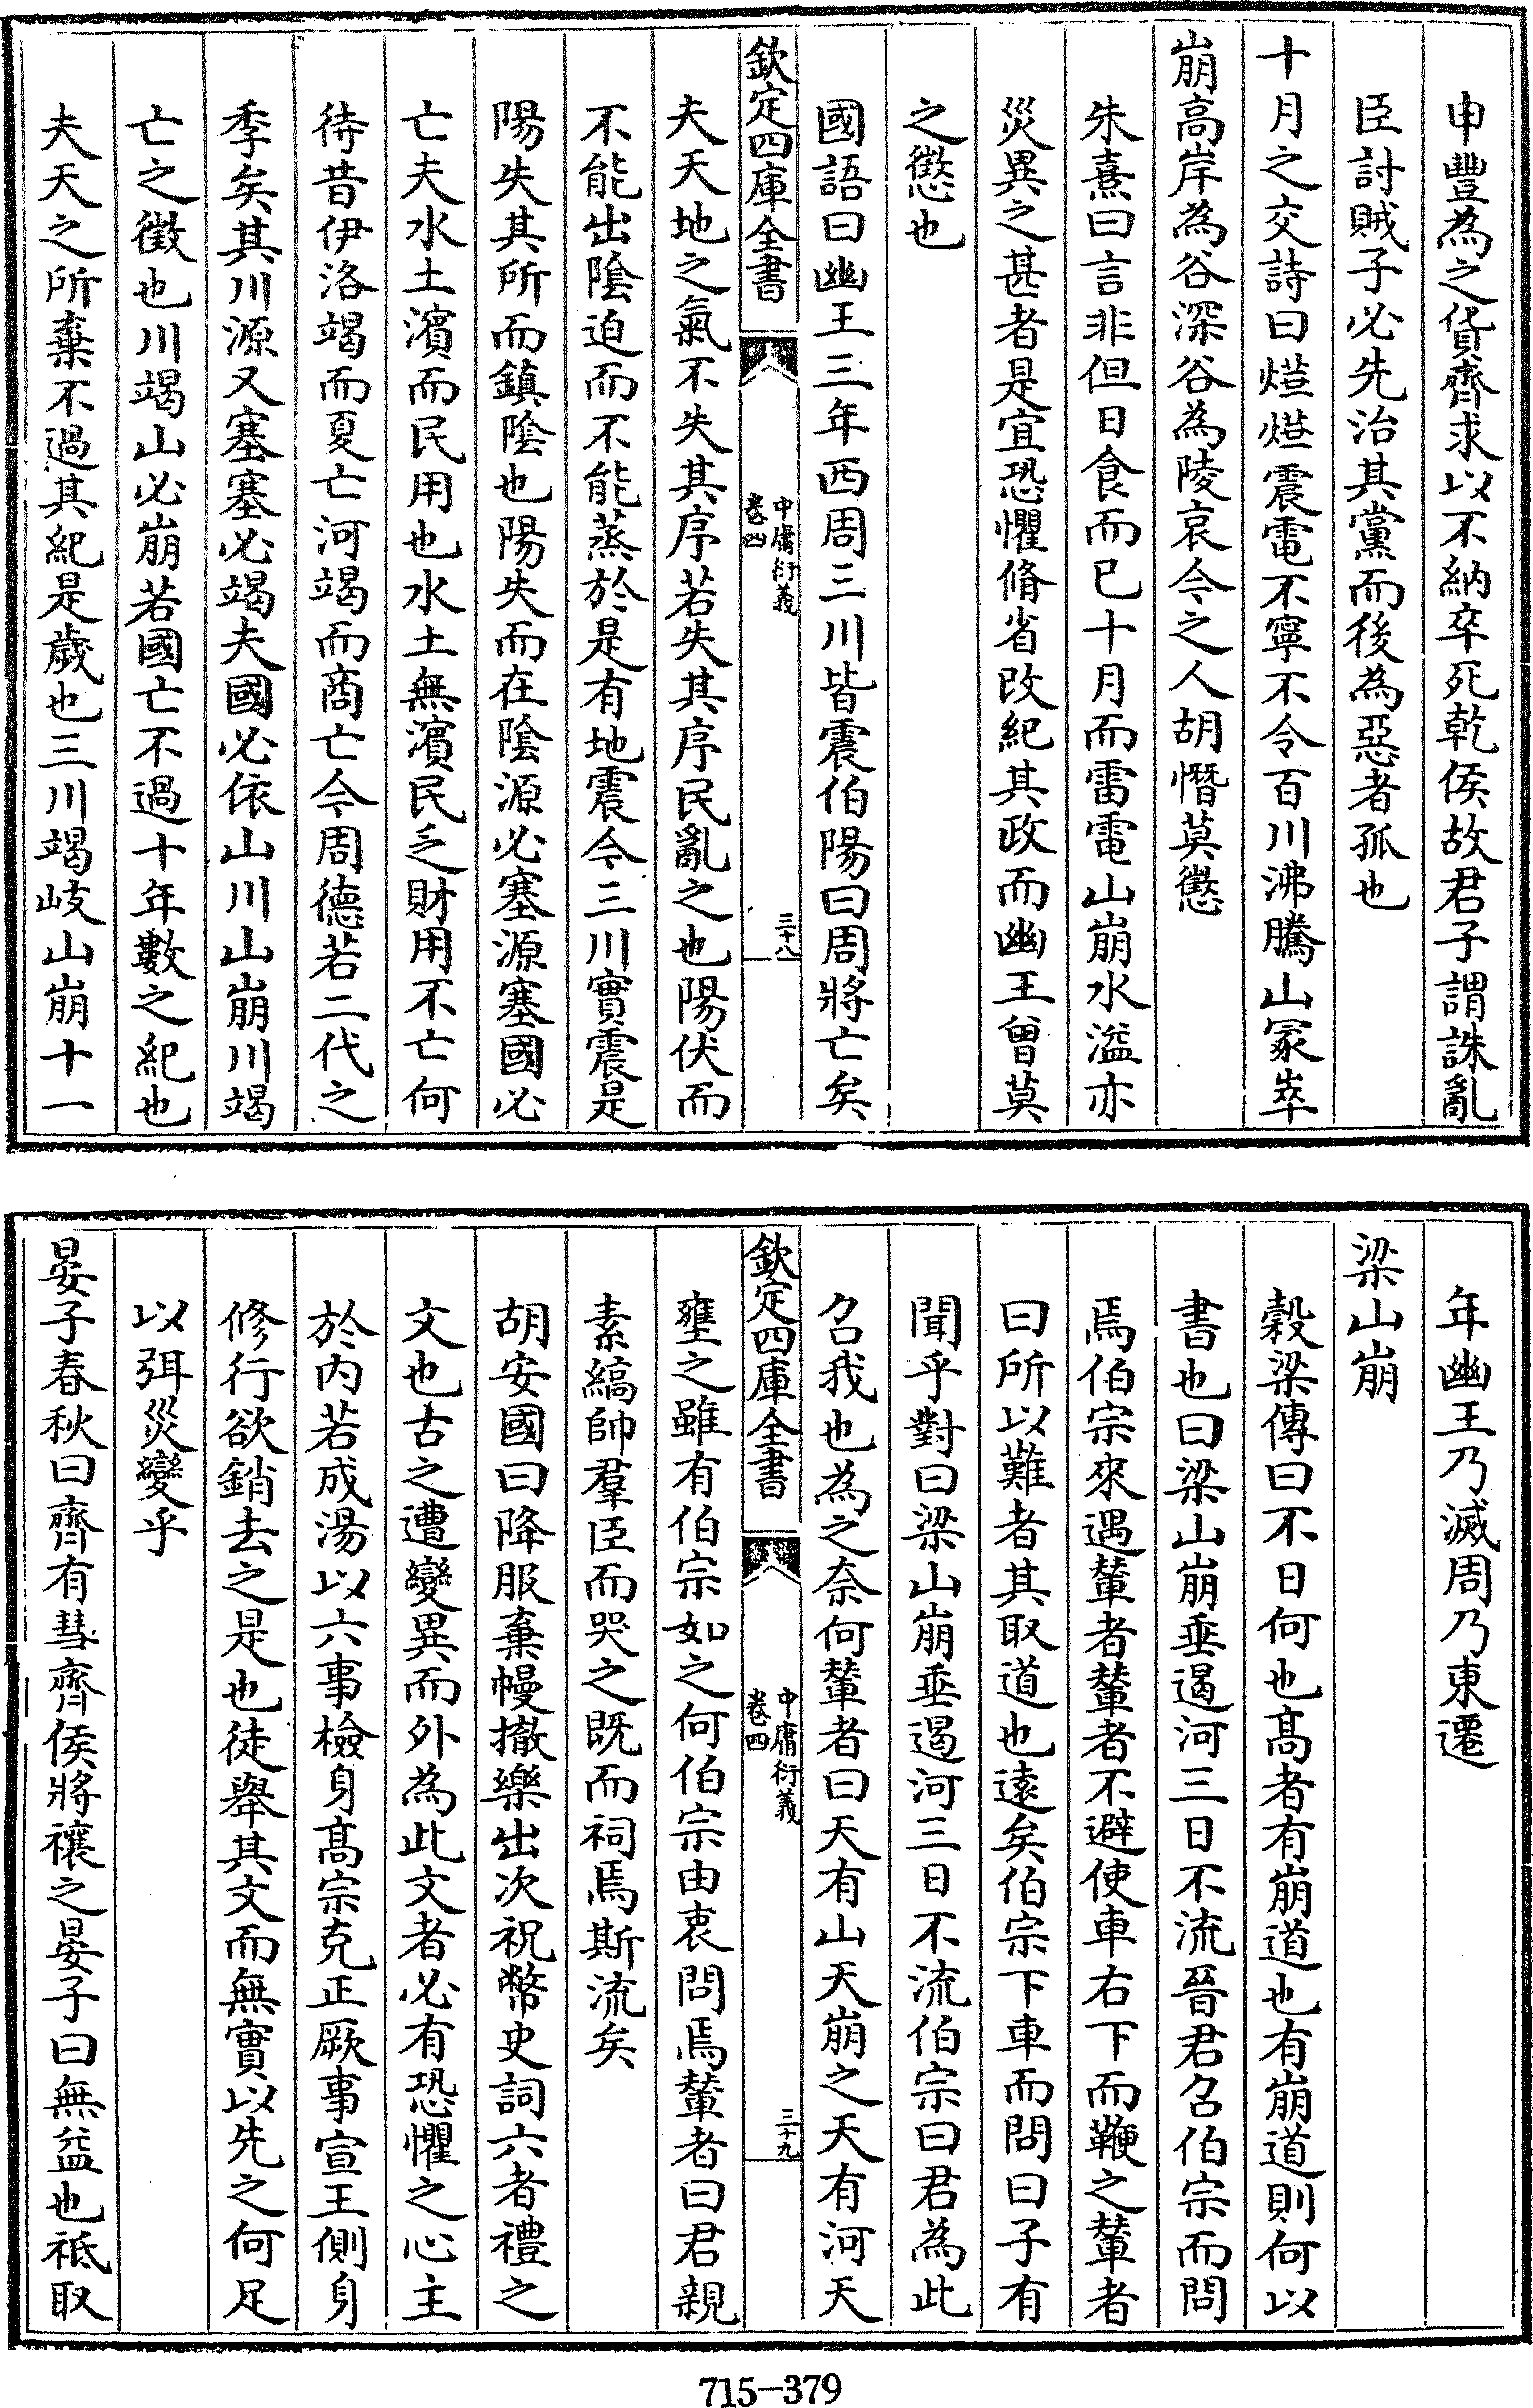 申豐為之貨齊求以不納卒死乾侯故君子謂誅亂
臣討賊子必先治其黨而後為惡者孤也
十月之交詩曰爗爗震電不寧不令百川沸騰山冢崒
崩高岸為谷深谷為陵哀今之人胡憯莫懲
朱熹曰言非但日食而已十月而雷電山崩水溢亦
災異之甚者是宜恐懼脩省改紀其政而幽王曾莫
之懲也
國語曰幽王三年西周三川皆震伯陽曰周將亡矣
欽定四庫全書
中庸衍義
卷四
三十八
夫天地之氣不失其序若失其序民亂之也陽伏而
不能出陰迫而不能蒸於是有地震今三川實震是
陽失其所而鎮陰也陽失而在陰源必塞源塞國必
亡夫水土濱而民用也水土無濱民乏財用不亡何
待昔伊洛竭而夏亡河竭而商亡今周德若二代之
季矣其川源又塞塞必竭夫國必依山川山崩川竭
亡之徵也川竭山必崩若國亡不過十年數之紀也
夫天之所棄不過其紀是歲也三川竭岐山崩十一
年幽王乃滅周乃東遷
梁山崩
穀梁傳曰不日何也髙者有崩道也有崩道則何以
書也曰梁山崩壅遏河三日不流晉君召伯宗而問
焉伯宗來遇輦者輦者不避使車右下而鞭之輦者
曰所以難者其取道也遠矣伯宗下車而問曰子有
聞乎對曰梁山崩壅遏河三日不流伯宗曰君為此
召我也為之奈何輦者曰天有山天崩之天有河天
欽定四庫全書
中庸衍義
卷四
三十九
壅之雖有伯宗如之何伯宗由衷問焉輦者曰君親
素縞帥羣臣而哭之既而祠焉斯流矣
胡安國曰降服棄幔撤樂出次祝幣史詞六者禮之
文也古之遭變異而外為此文者必有恐懼之心主
於内若成湯以六事檢身髙宗克正厥事宣王側身
修行欲銷去之是也徒舉其文而無實以先之何足
以弭災變乎
晏子春秋曰齊有彗齊侯將禳之晏子曰無益也祗取
715-379